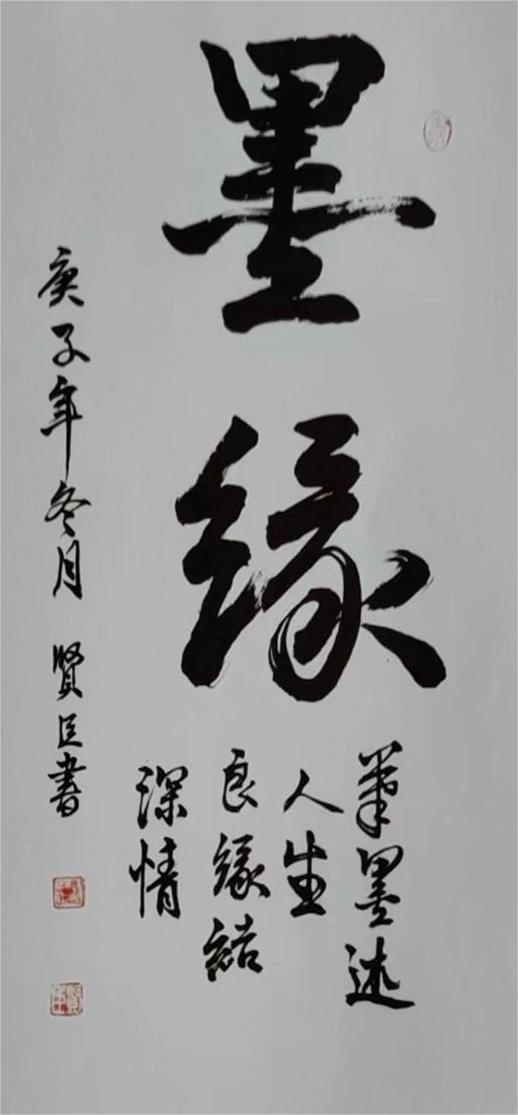 墨緣
筆墨述
人生
良緣結
深情
庚子年冬月 賢臣書